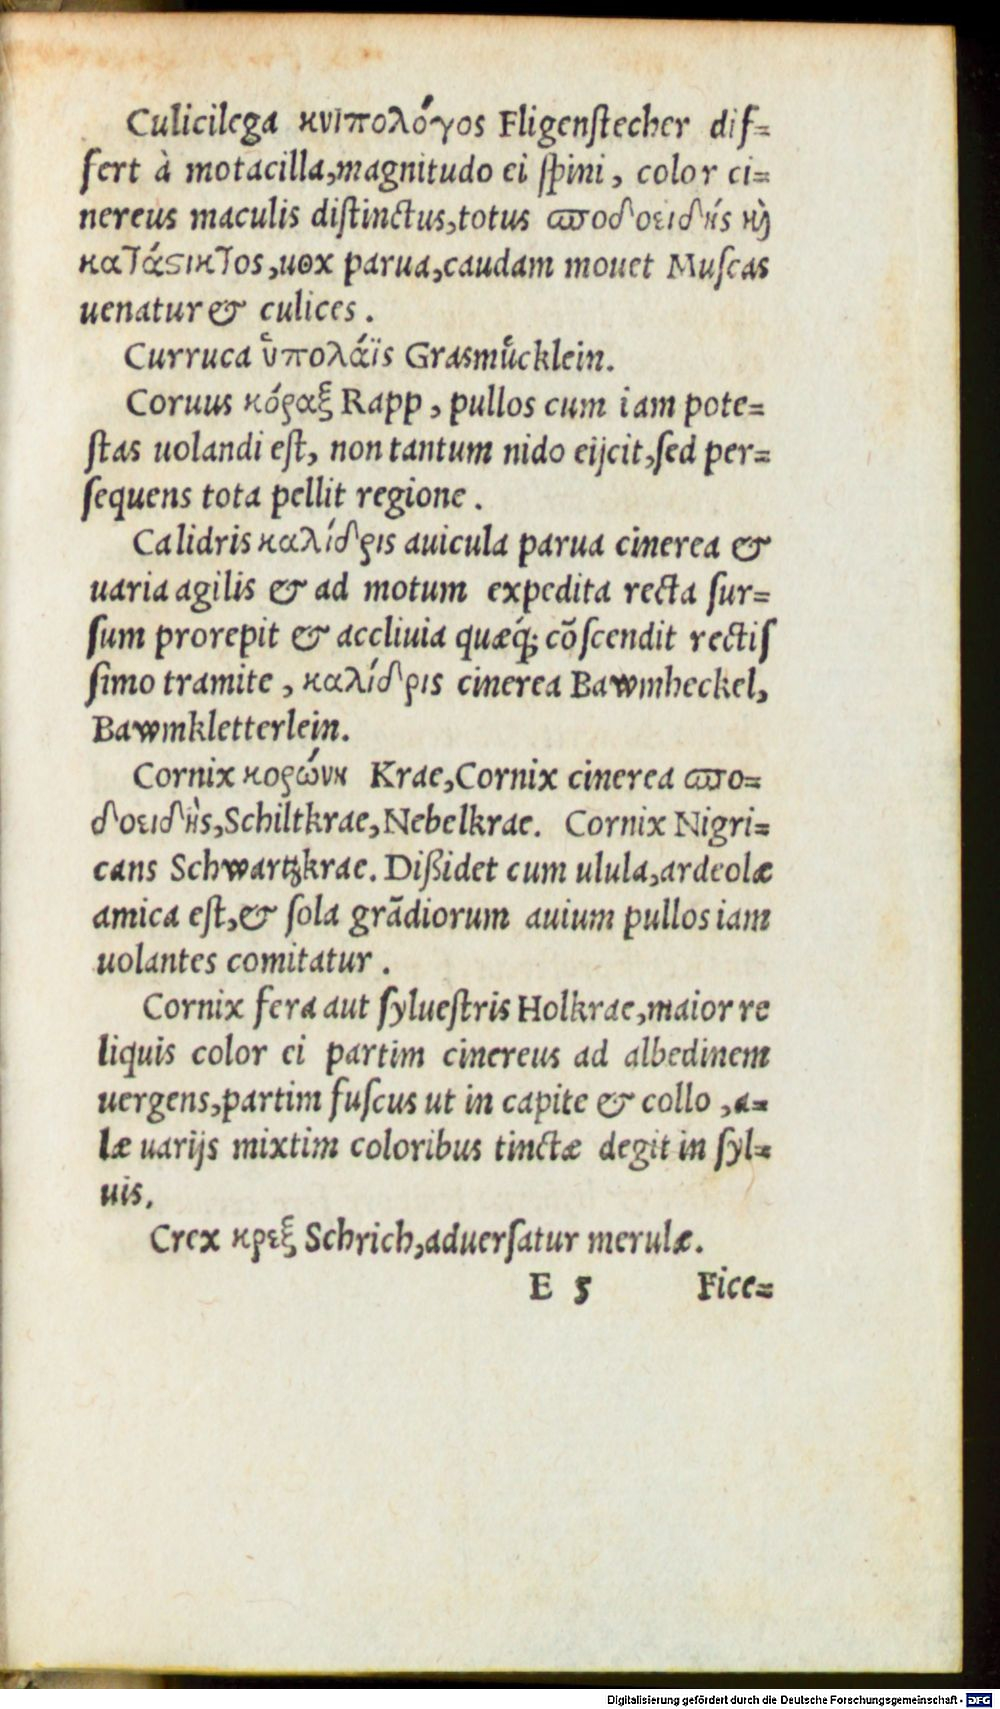 Culicilega κνιπολόγος Fligenſtecher dif=
fert à motacilla,magnitudo ei ſpini, color ci=
nereus maculis diſtinctus,totus ϖοδοειδής ϗ
κατάϛικτος,uox parua,caudam mouet Muſcas
uenatur & culices.
Curruca ὑπολάϊς Graſmuͤcklein.
Coruus κόραξ Rapp, pullos cum iam pote=
ſtas uolandi eſt, non tantum nido eijcit,ſed per=
ſequens tota pellit regione.
Calidris καλίδρις auicula parua cinerea &
uaria agilis & ad motum expedita recta ſur=
ſum prorepit & accliuia quæq; cõſcendit rectiſ
ſimo tramite, καλίδρις cinerea Bawmheckel,
Bawmkletterlein.
Cornix κορώνη Krae,Cornix cinerea ϖο=
δοειδὴς,Schiltkrae,Nebelkrae. Cornix Nigri=
cans Schwartzkrae. Dißidet cum ulula,ardeolæ
amica eſt,& ſola grãdiorum auium pullos iam
uolantes comitatur.
Cornix fera aut ſylueſtris Holkrae,maior re
liquis color ei partim cinereus ad albedinem
uergens,partim fuſcus ut in capite & collo ,a=
læ uarijs mixtim coloribus tinctæ degit in ſyl=
uis.
Crex κρεξ Schrich,aduerſatur merulæ.
E 5 Fice=
Digitalisierung gefördert durch die Deutsche Forschungsgemeinschaft - DFG